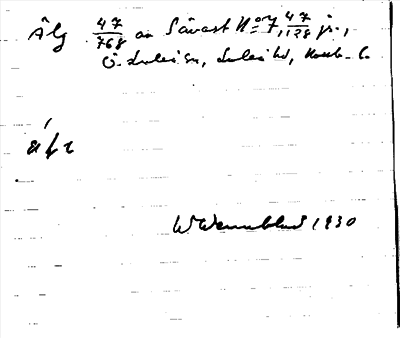 Älg 47/768 av Sävast N:o 7, 47/1128 jr.,
Ö. Luleå sn, Luleå hd, Norrb. l.
äfr
W Wennblad 1930